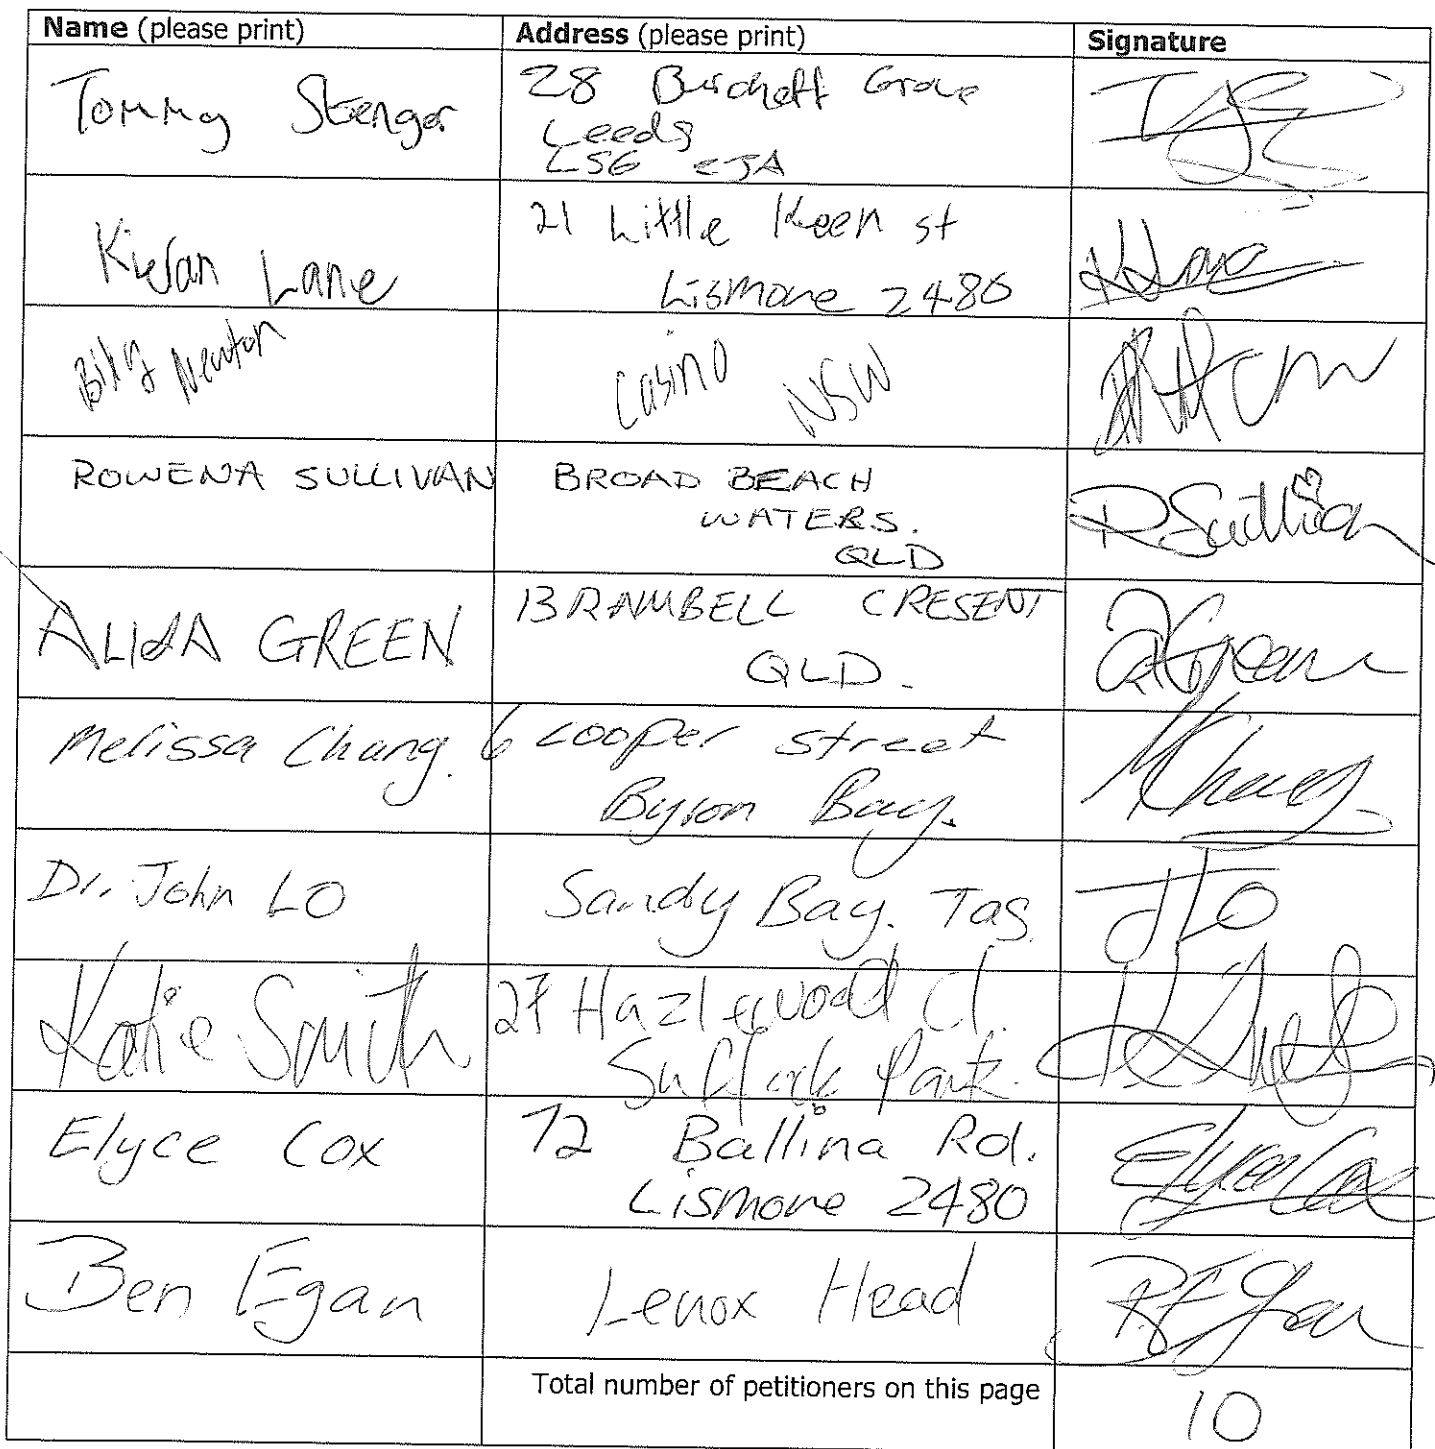 Name (please print) Address (please print) Signature
Tommy 28 Grove
Leeds
LS6
Kieran Lane 21 Little Keen st
Lismore 2480
Billy Newton Casino NSW
ROWENA SULLIVAN BROAD BEACH R Sullivan
WATERS.
QLD
ALIDA GREEN 13 RAMBELL CRESENT
QLD. Green
Melissa Chang. 6 Cooper street MChang
Byron Bay.
Dr. John LO Sandy Bay. Tas. J LO
Katie Smith 27 Hazlewood Cl.
Suffolk Park.
Elyce Cox 72 Ballina Rd. Elyce Cox
Lismore 2480
Ben Egan Lenox Head B Egan
Total number of petitioners on this page 10